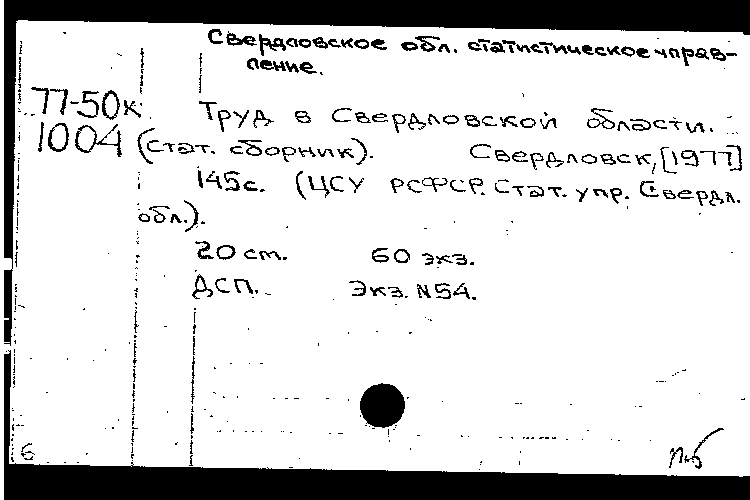 Свердловское обл. статистическое управ-
ление.
77-50к Труд в Свердловской области.
1004 (стат. сборник). Свердловск, [1977]
145с. (ЦСУ РСФСР. Стат. упр. Свердл.
обл.).
20 ст. 60 экз.
ДСП. Экз. N54.
6